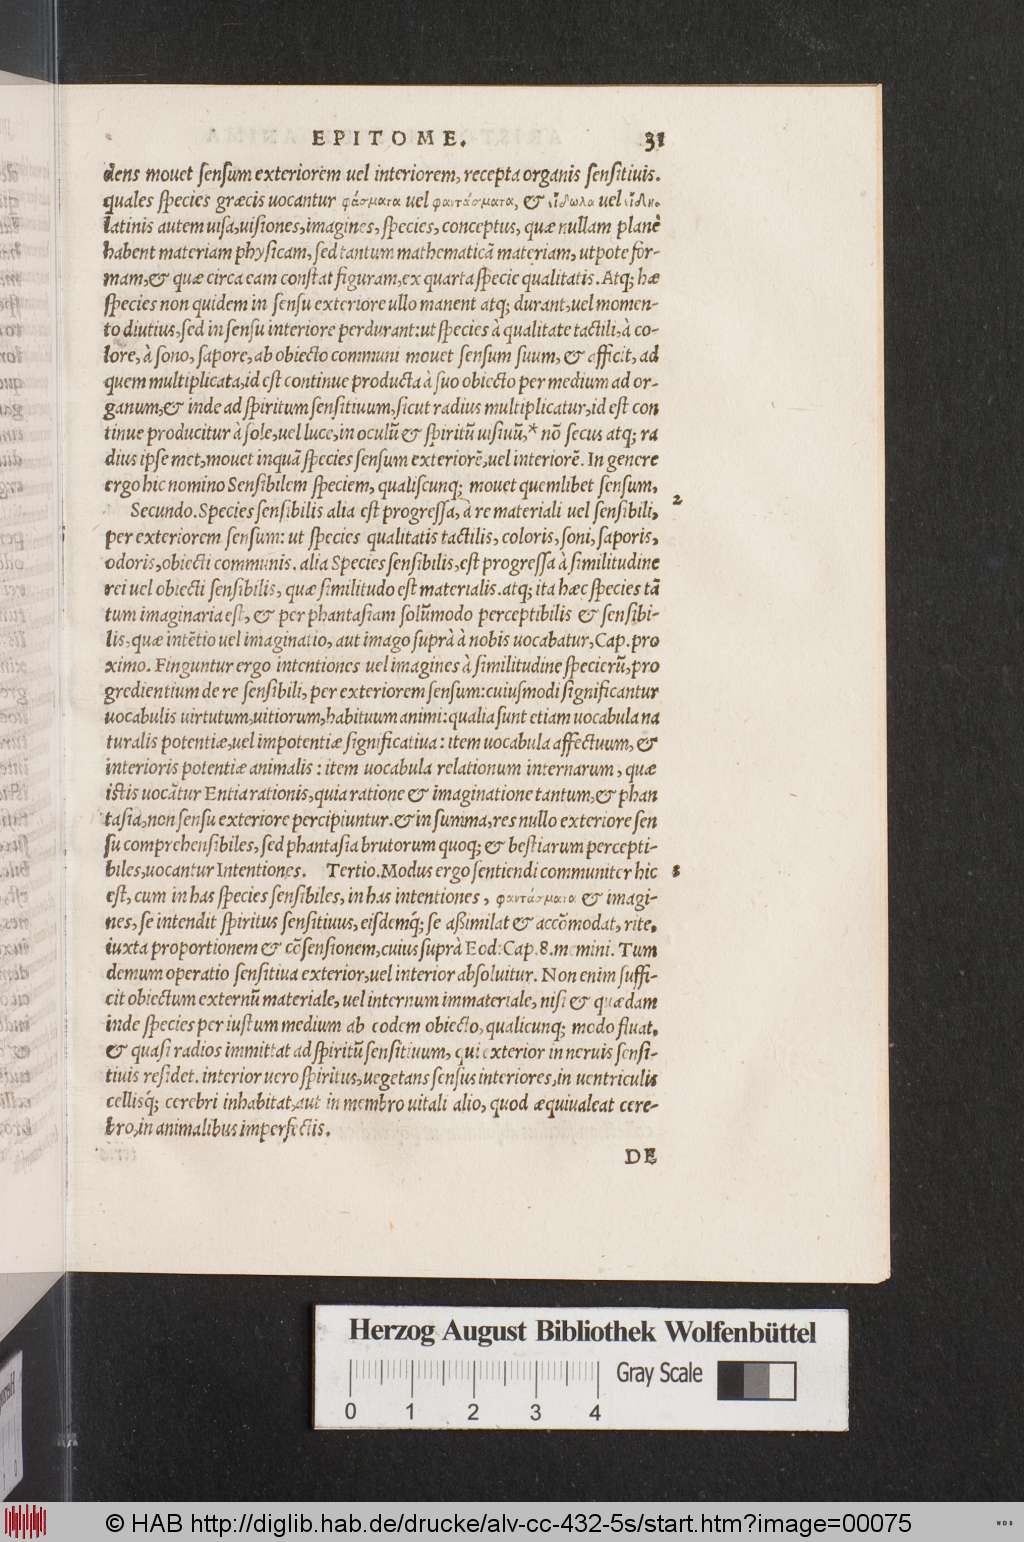 EPITOME. 31
dens mouet ſenſum exteriorem uel interiorem, recepta organis ſenſitiuis.
quales ſpecies græcis uocantur φάσματα uel φαντάσματα, & εἴδωλα uel
latinis autem uiſa, uiſiones, imagines, ſpecies, conceptus, quæ nullam planè
habent materiam phyſicam, ſed tantum mathematicã materiam, utpote for-
mam, & quæ circa eam conſtat figuram, ex quarta ſpecie qualitatis. Atq; hæ
ſpecies non quidem in ſenſu exteriore ullo manent atq; durant, uel momen-
to diutius, ſed in ſenſu interiore perdurant: ut ſpecies à qualitate tactili, à co-
lore, à ſono, ſapore, ab obiecto communi mouet ſenſum ſuum, & afficit, ad
quem multiplicata, id eſt continue producta à ſuo obiecto per medium ad or-
ganum, & inde ad ſpiritum ſenſitiuum, ſicut radius multiplicatur, id eſt con
tinue producitur à ſole, uel luce, in oculũ & ſpiritũ uiſiuũ,* nõ ſecus atq; ra
dius ipſe met, mouet inquã ſpecies ſenſum exteriorẽ, uel interiorẽ. In genere
ergo hic nomino Senſibilem ſpeciem, qualiſcunq; mouet quemlibet ſenſum,
Secundo. Species ſenſibilis alia eſt progreſſa, à re materiali uel ſenſibili, 2
per exteriorem ſenſum: ut ſpecies qualitatis tactilis, coloris, ſoni, ſaporis,
odoris, obiecti communis. alia Species ſenſibilis, eſt progreſſa à ſimilitudine
rei uel obiecti ſenſibilis, quæ ſimilitudo eſt materialis. atq; ita hæc ſpecies tã
tum imaginaria eſt, & per phantaſiam ſolũmodo perceptibilis & ſenſibi-
lis, quæ intẽtio uel imaginatio, aut imago ſuprà à nobis uocabatur, Cap. pro
ximo. Finguntur ergo intentiones uel imagines à ſimilitudine ſpecierũ, pro
gredientium de re ſenſibili, per exteriorem ſenſum: cuiuſmodi ſignificantur
uocabulis uirtutum, uitiorum, habituum animi: qualia ſunt etiam uocabula na
turalis potentiæ, uel impotentiæ ſignificatiua: item uocabula affectuum, &
interioris potentiæ animalis: item uocabula relationum internarum, quæ
iſtis uocãtur Entia rationis, quia ratione & imaginatione tantum, & phan
taſia, non ſenſu exteriore percipiuntur. & in ſumma, res nullo exteriore ſen
ſu comprehenſibiles, ſed phantaſia brutorum quoq; & beſtiarum percepti-
biles, uocantur Intentiones. Tertio. Modus ergo ſentiendi communiter hic 3
eſt, cum in has ſpecies ſenſibiles, in has intentiones, φαντάσματα & imagi-
nes, ſe intendit ſpiritus ſenſitiuus, eiſdemq́; ſe aßimilat & accõmodat, rite,
iuxta proportionem & cõſenſionem, cuius ſuprà Eod: Cap. 8. memini. Tum
demum operatio ſenſitiua exterior, uel interior abſoluitur. Non enim ſuffi-
cit obiectum externũ materiale, uel internum immateriale, niſi & quædam
inde ſpecies per iuſtum medium ab eodem obiecto, qualicunq; modo fluat,
& quaſi radios immittat ad ſpiritũ ſenſitiuum, qui exterior in neruis ſenſi-
tiuis reſidet. interior uero ſpiritus, uegetans ſenſus interiores, in uentriculis
celliſq́; cerebri inhabitat, aut in membro uitali alio, quod æquiualeat cere-
bro, in animalibus imperfectis.
DE
Herzog August Bibliothek Wolfenbüttel
Gray Scale
0 1 2 3 4
© HAB http://diglib.hab.de/drucke/alv-cc-432-5s/start.htm?image=00075